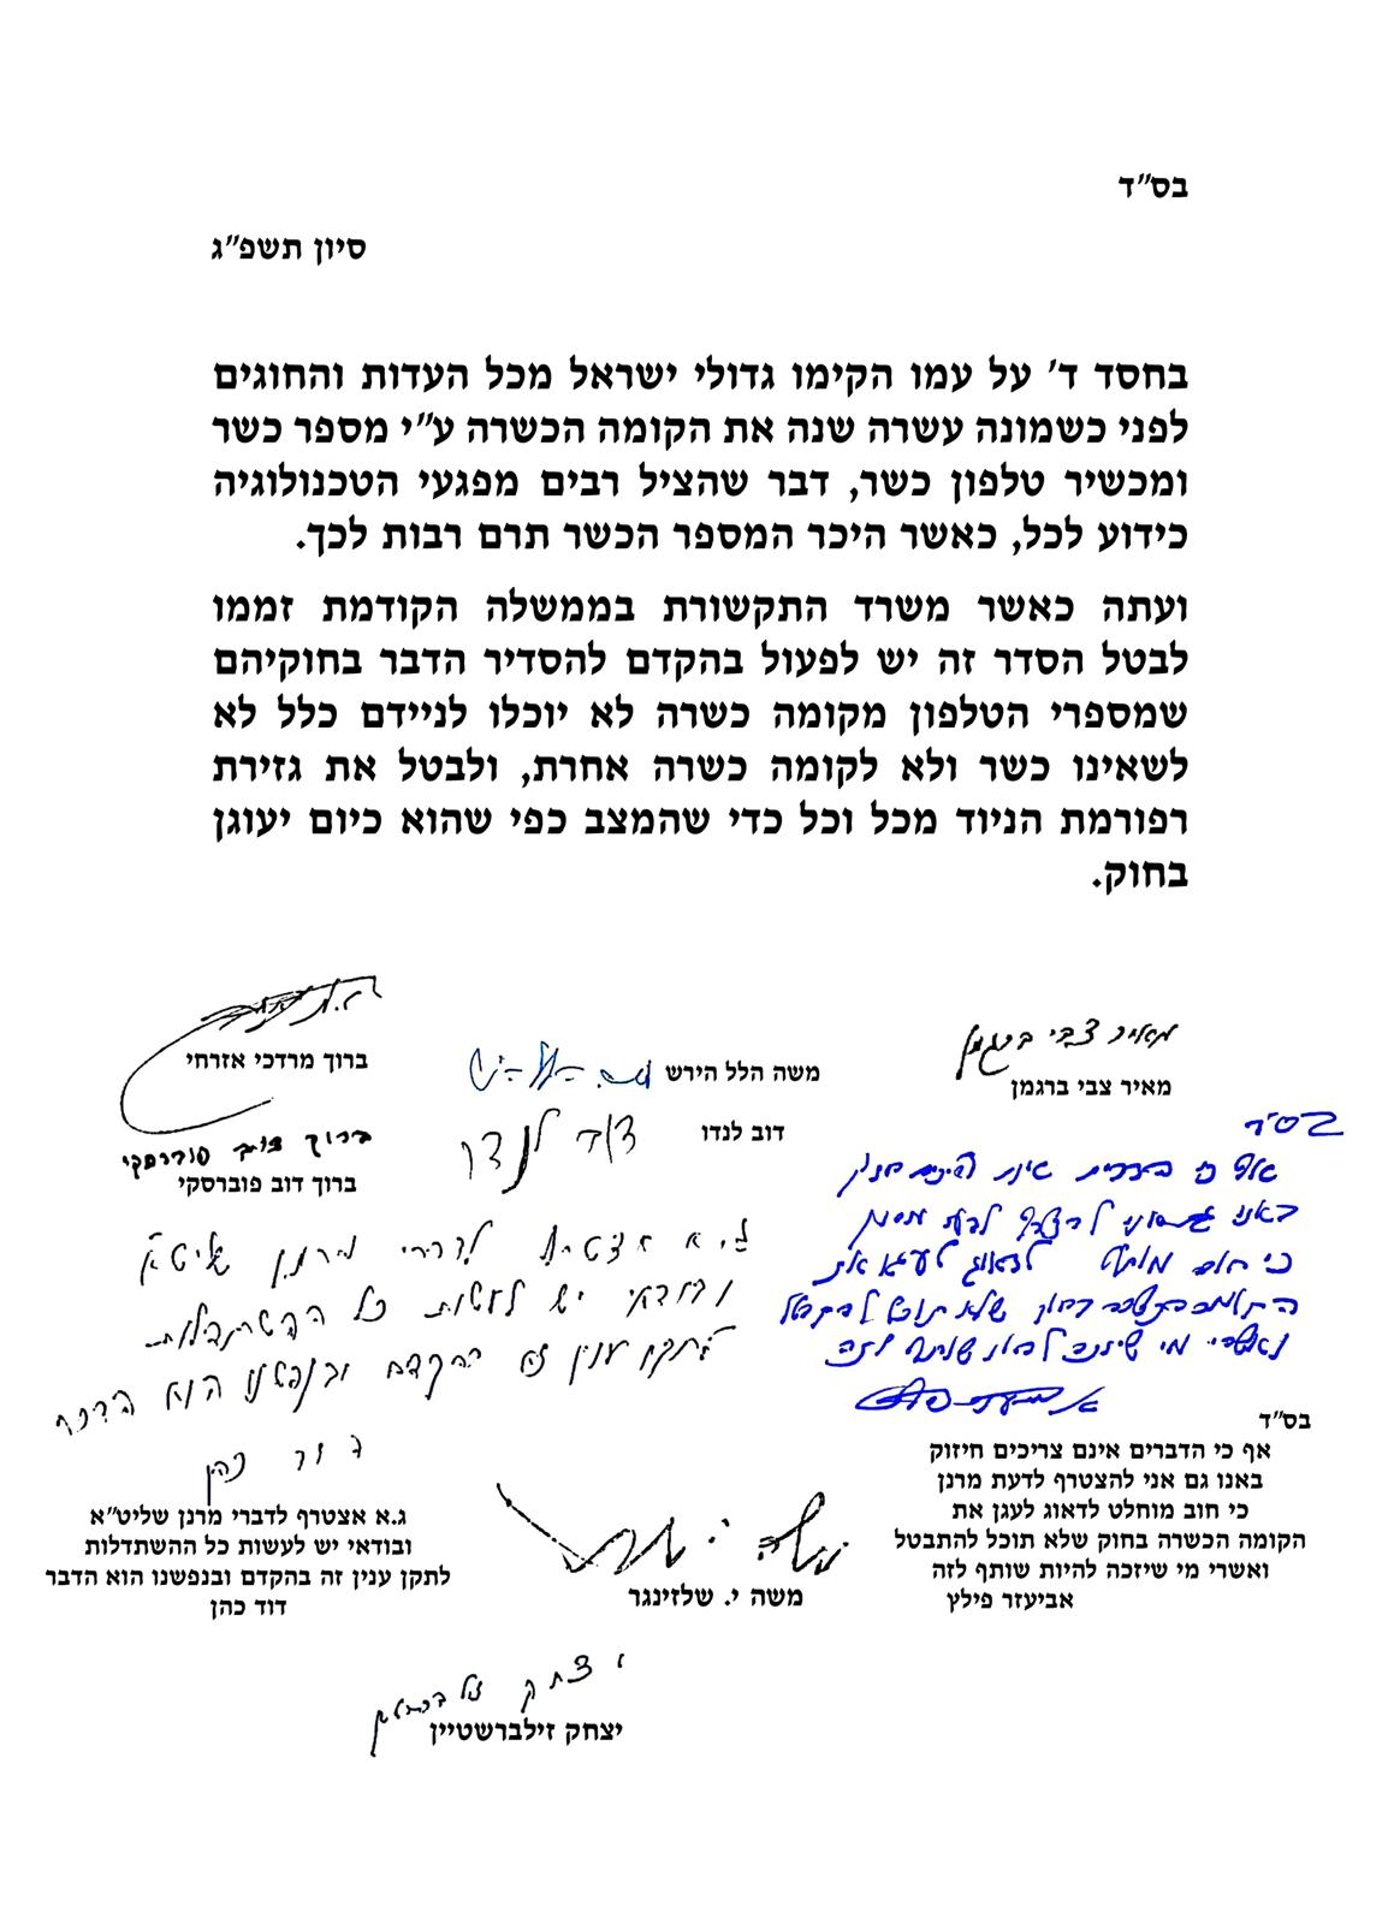 בס"ד
סיון תשפ"ג
בחסד ד' על עמו הקימו גדולי ישראל מכל העדות והחוגים
לפני כשמונה עשרה שנה את הקומה הכשרה ע"י מספר כשר
ומכשיר טלפון כשר, דבר שהציל רבים מפגעי הטכנולוגיה
כידוע לכל, כאשר היכר המספר הכשר תרם רבות לכך.
ועתה כאשר משרד התקשורת בממשלה הקודמת זממו
לבטל הסדר זה יש לפעול בהקדם להסדיר הדבר בחוקיהם
שמספרי הטלפון מקומה כשרה לא יוכלו לניידם כלל לא
לשאינו כשר ולא לקומה כשרה אחרת, ולבטל את גזירת
רפורמת הניוד מכל וכל כדי שהמצב כפי שהוא כיום יעוגן
בחוק.
מאיר צבי ברגמן
מאיר צבי ברגמן
משה הלל הירש
משה הלל הירש
ברוך מרדכי אזרחי
דוב לנדו
דוב לנדו
ברוך דוב פוברסקי
ברוך דוב פוברסקי
בס"ד
אף כי הדברים אינם צריכים חיזוק
באנו גם אני להצטרף לדעת מרנן
כי חוב מוחלט לדאוג לעגן את
הקומה הכשרה בחוק שלא תוכל להתבטל
ואשרי מי שיזכה להיות שותף לזה
א פילץ
בס"ד
אף כי הדברים אינם צריכים חיזוק
באנו גם אני להצטרף לדעת מרנן
כי חוב מוחלט לדאוג לעגן את
הקומה הכשרה בחוק שלא תוכל להתבטל
ואשרי מי שיזכה להיות שותף לזה
אביעזר פילץ
ג.א אצטרף לדברי מרנן שליט"א
ובודאי יש לעשות כל ההשתדלות
לתקן ענין זה בהקדם ובנפשנו הוא הדבר
דוד כהן
ג.א אצטרף לדברי מרנן שליט"א
ובודאי יש לעשות כל ההשתדלות
לתקן ענין זה בהקדם ובנפשנו הוא הדבר
דוד כהן
משה י.
משה י. שלזינגר
יצחק זילברשטיין
יצחק זילברשטיין